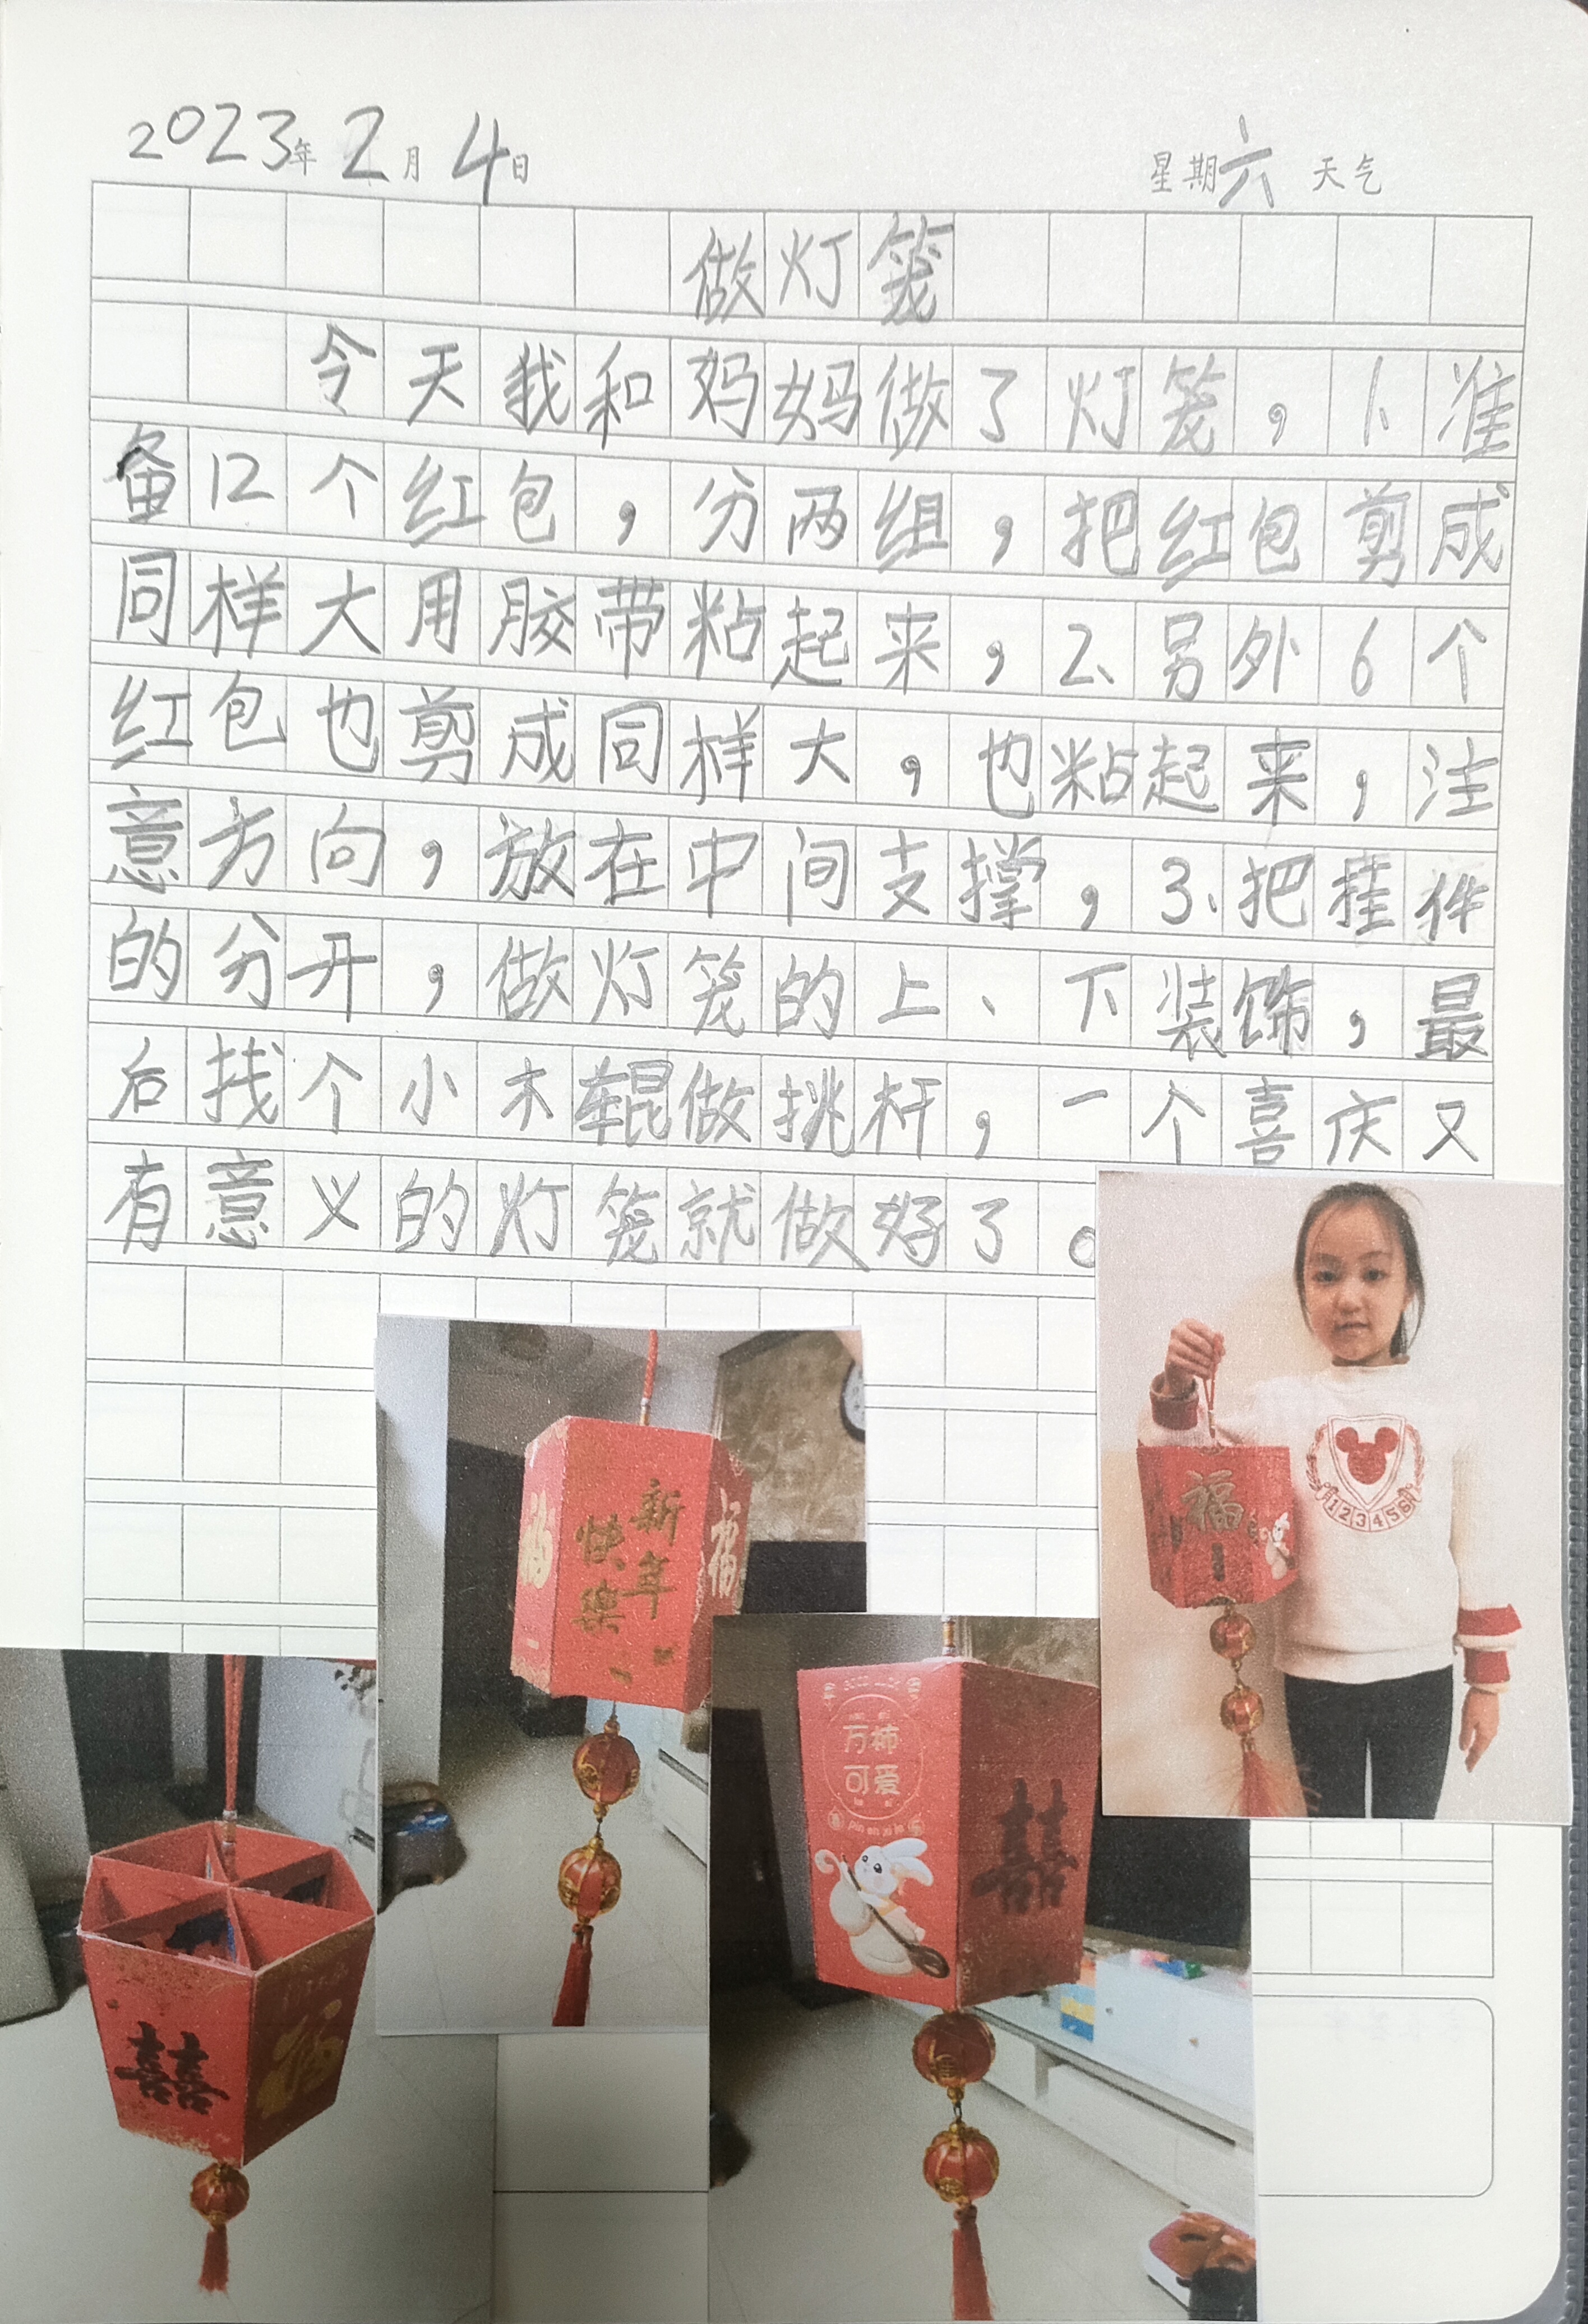 2023年 2月 4日 星期六 天气
做灯笼
今天我和妈妈做了灯笼，1、准
备12个红包，分两组，把红包剪成
同样大用胶带粘起来，2、另外6个
红包也剪成同样大，也粘起来，注
意方向，放在中间支撑，3、把挂件
的分开，做灯笼的上、下装饰，最
后找个小木辊做挑杆，一个喜庆又
有意义的灯笼就做好了。
福
123456
福
新年
快樂
福
万柿
可爱
囍
囍
福